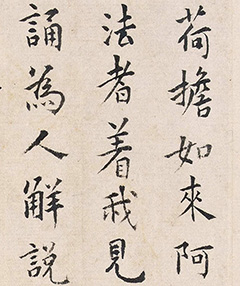 荷擔如來阿
法者着我見
誦為人解説